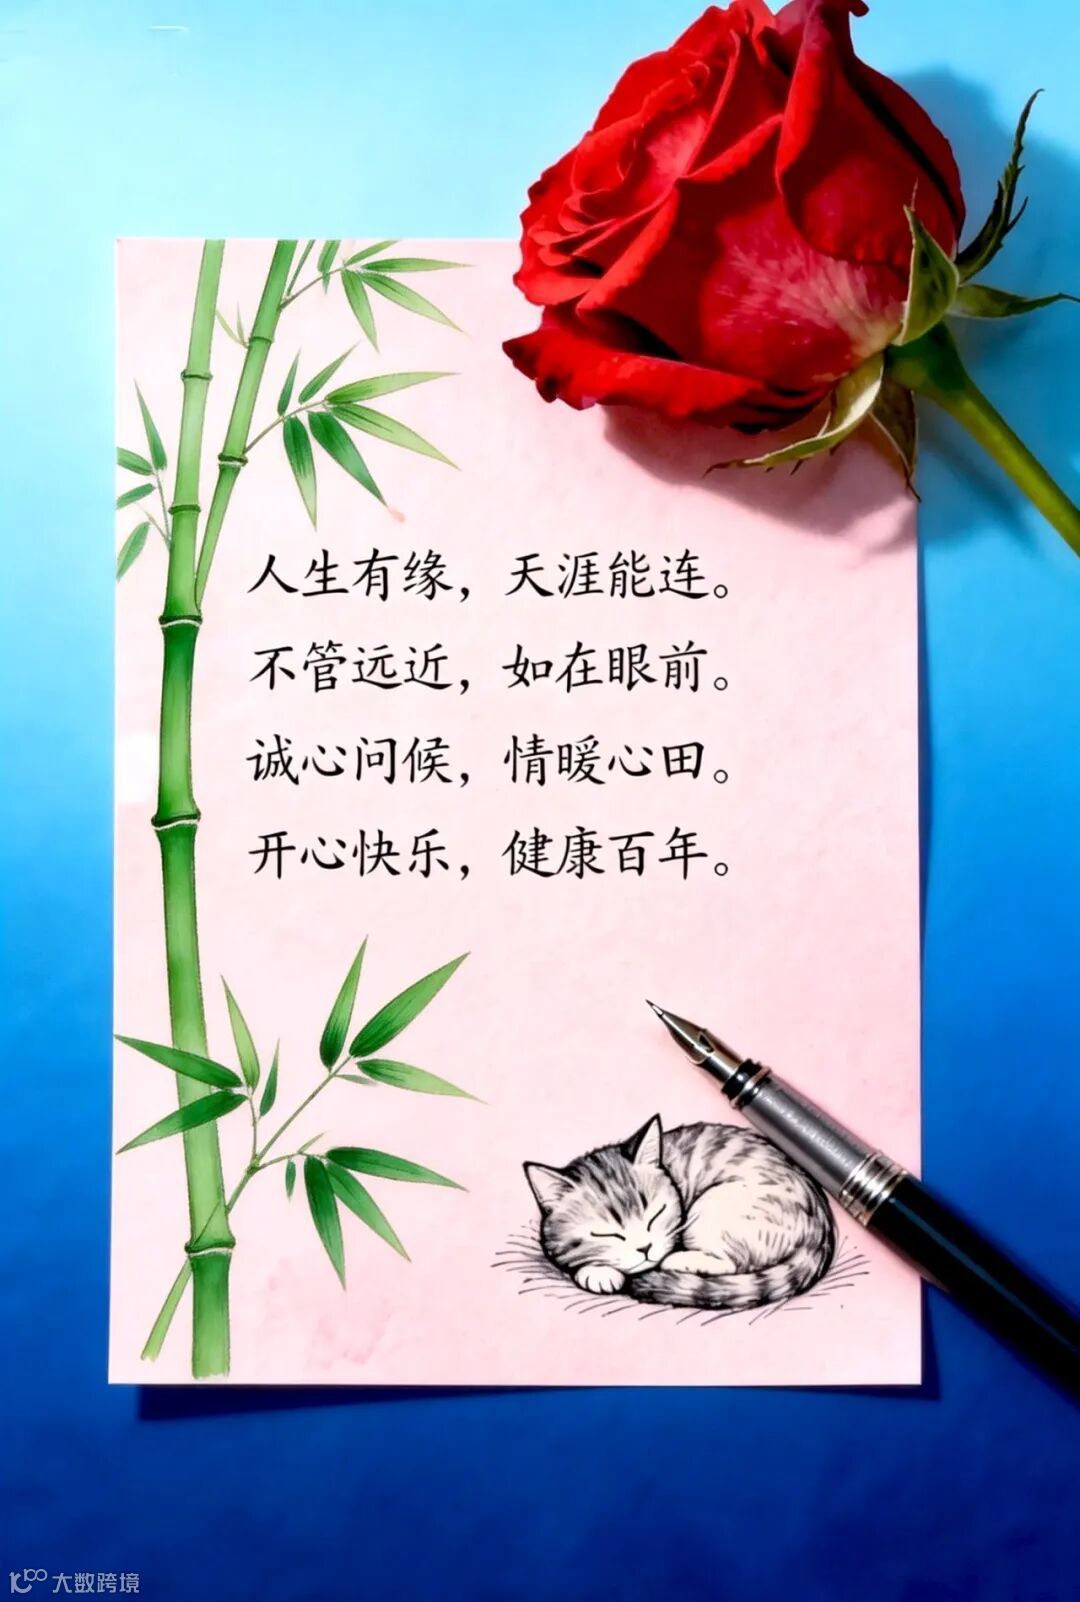 人生有缘，天涯能连。
不管远近，如在眼前。
诚心问候，情暖心田。
开心快乐，健康百年。
大数跨境